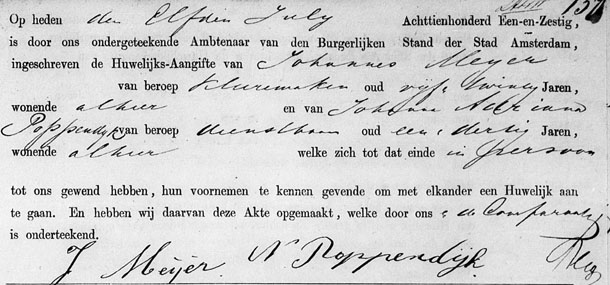 Op heden den Elfden July Achttienhonderd Een-en-Zestig,
is door ons ondergeteekende Ambtenaar van den Burgerlijken Stand der Stad Amsterdam,
ingeschreven de Huwelijks-Aangifte van Johannes Meyer
van beroep oud vijf & twintig Jaren,
wonende alhier en van Johanna Adriana
Poppendijk van beroep dienstboode oud een & dertig Jaren,
wonende alhier welke zich tot dat einde in Persoon
tot ons gewend hebben, hun voornemen te kennen gevende om met elkander een Huwelijk aan
te gaan. En hebben wij daarvan deze Akte opgemaakt, welke door ons & de
is onderteekend.
J Meijer. A Poppendijk.